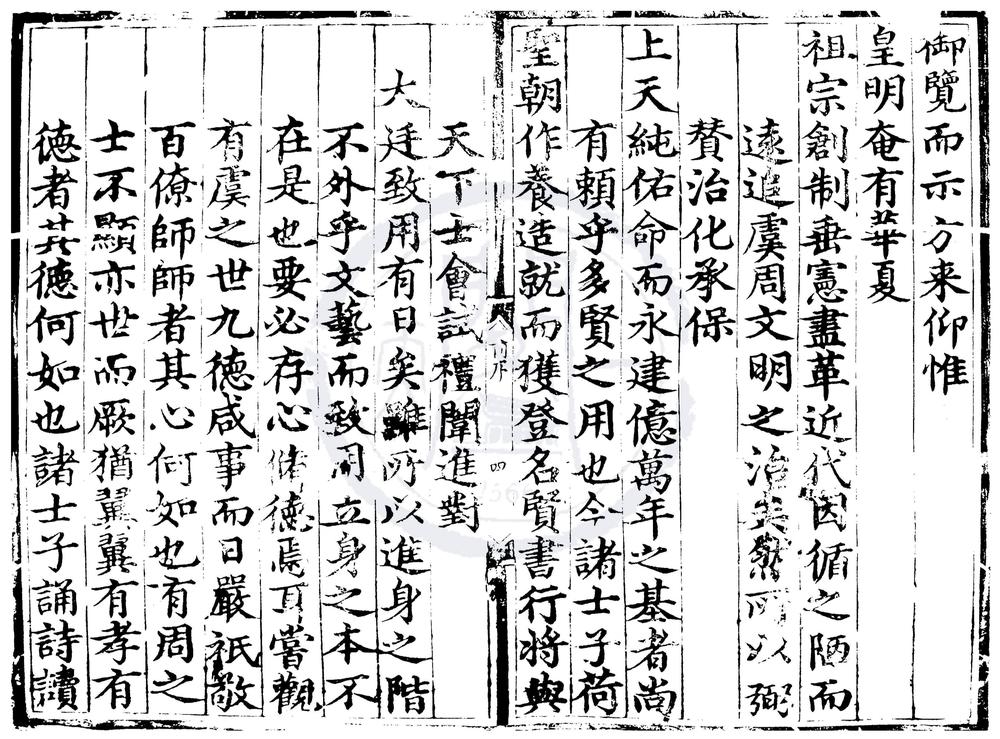 御覽而示方来仰惟
皇明奄有華夏
祖宗創制垂憲盡革近代因循之陋而
遠追虞周文明之治矣然所以弼
賛治化承保
上天純佑命而永建億萬年之基者尚
有頼乎多賢之用也今諸士子荷
聖朝作養造就而獲登名賢書行将與
天下士會試禮闈進對
大廷致用有日矣雖所以進身之階
不外乎文藝而致用立身之本不
在是也要必存心脩德焉耳嘗觀
有虞之世九德咸事而日嚴祇敬
百僚師師者其心何如也有周之
士不顯亦世而厥猶翼翼有孝有
德者其德何如也諸士子誦詩讀